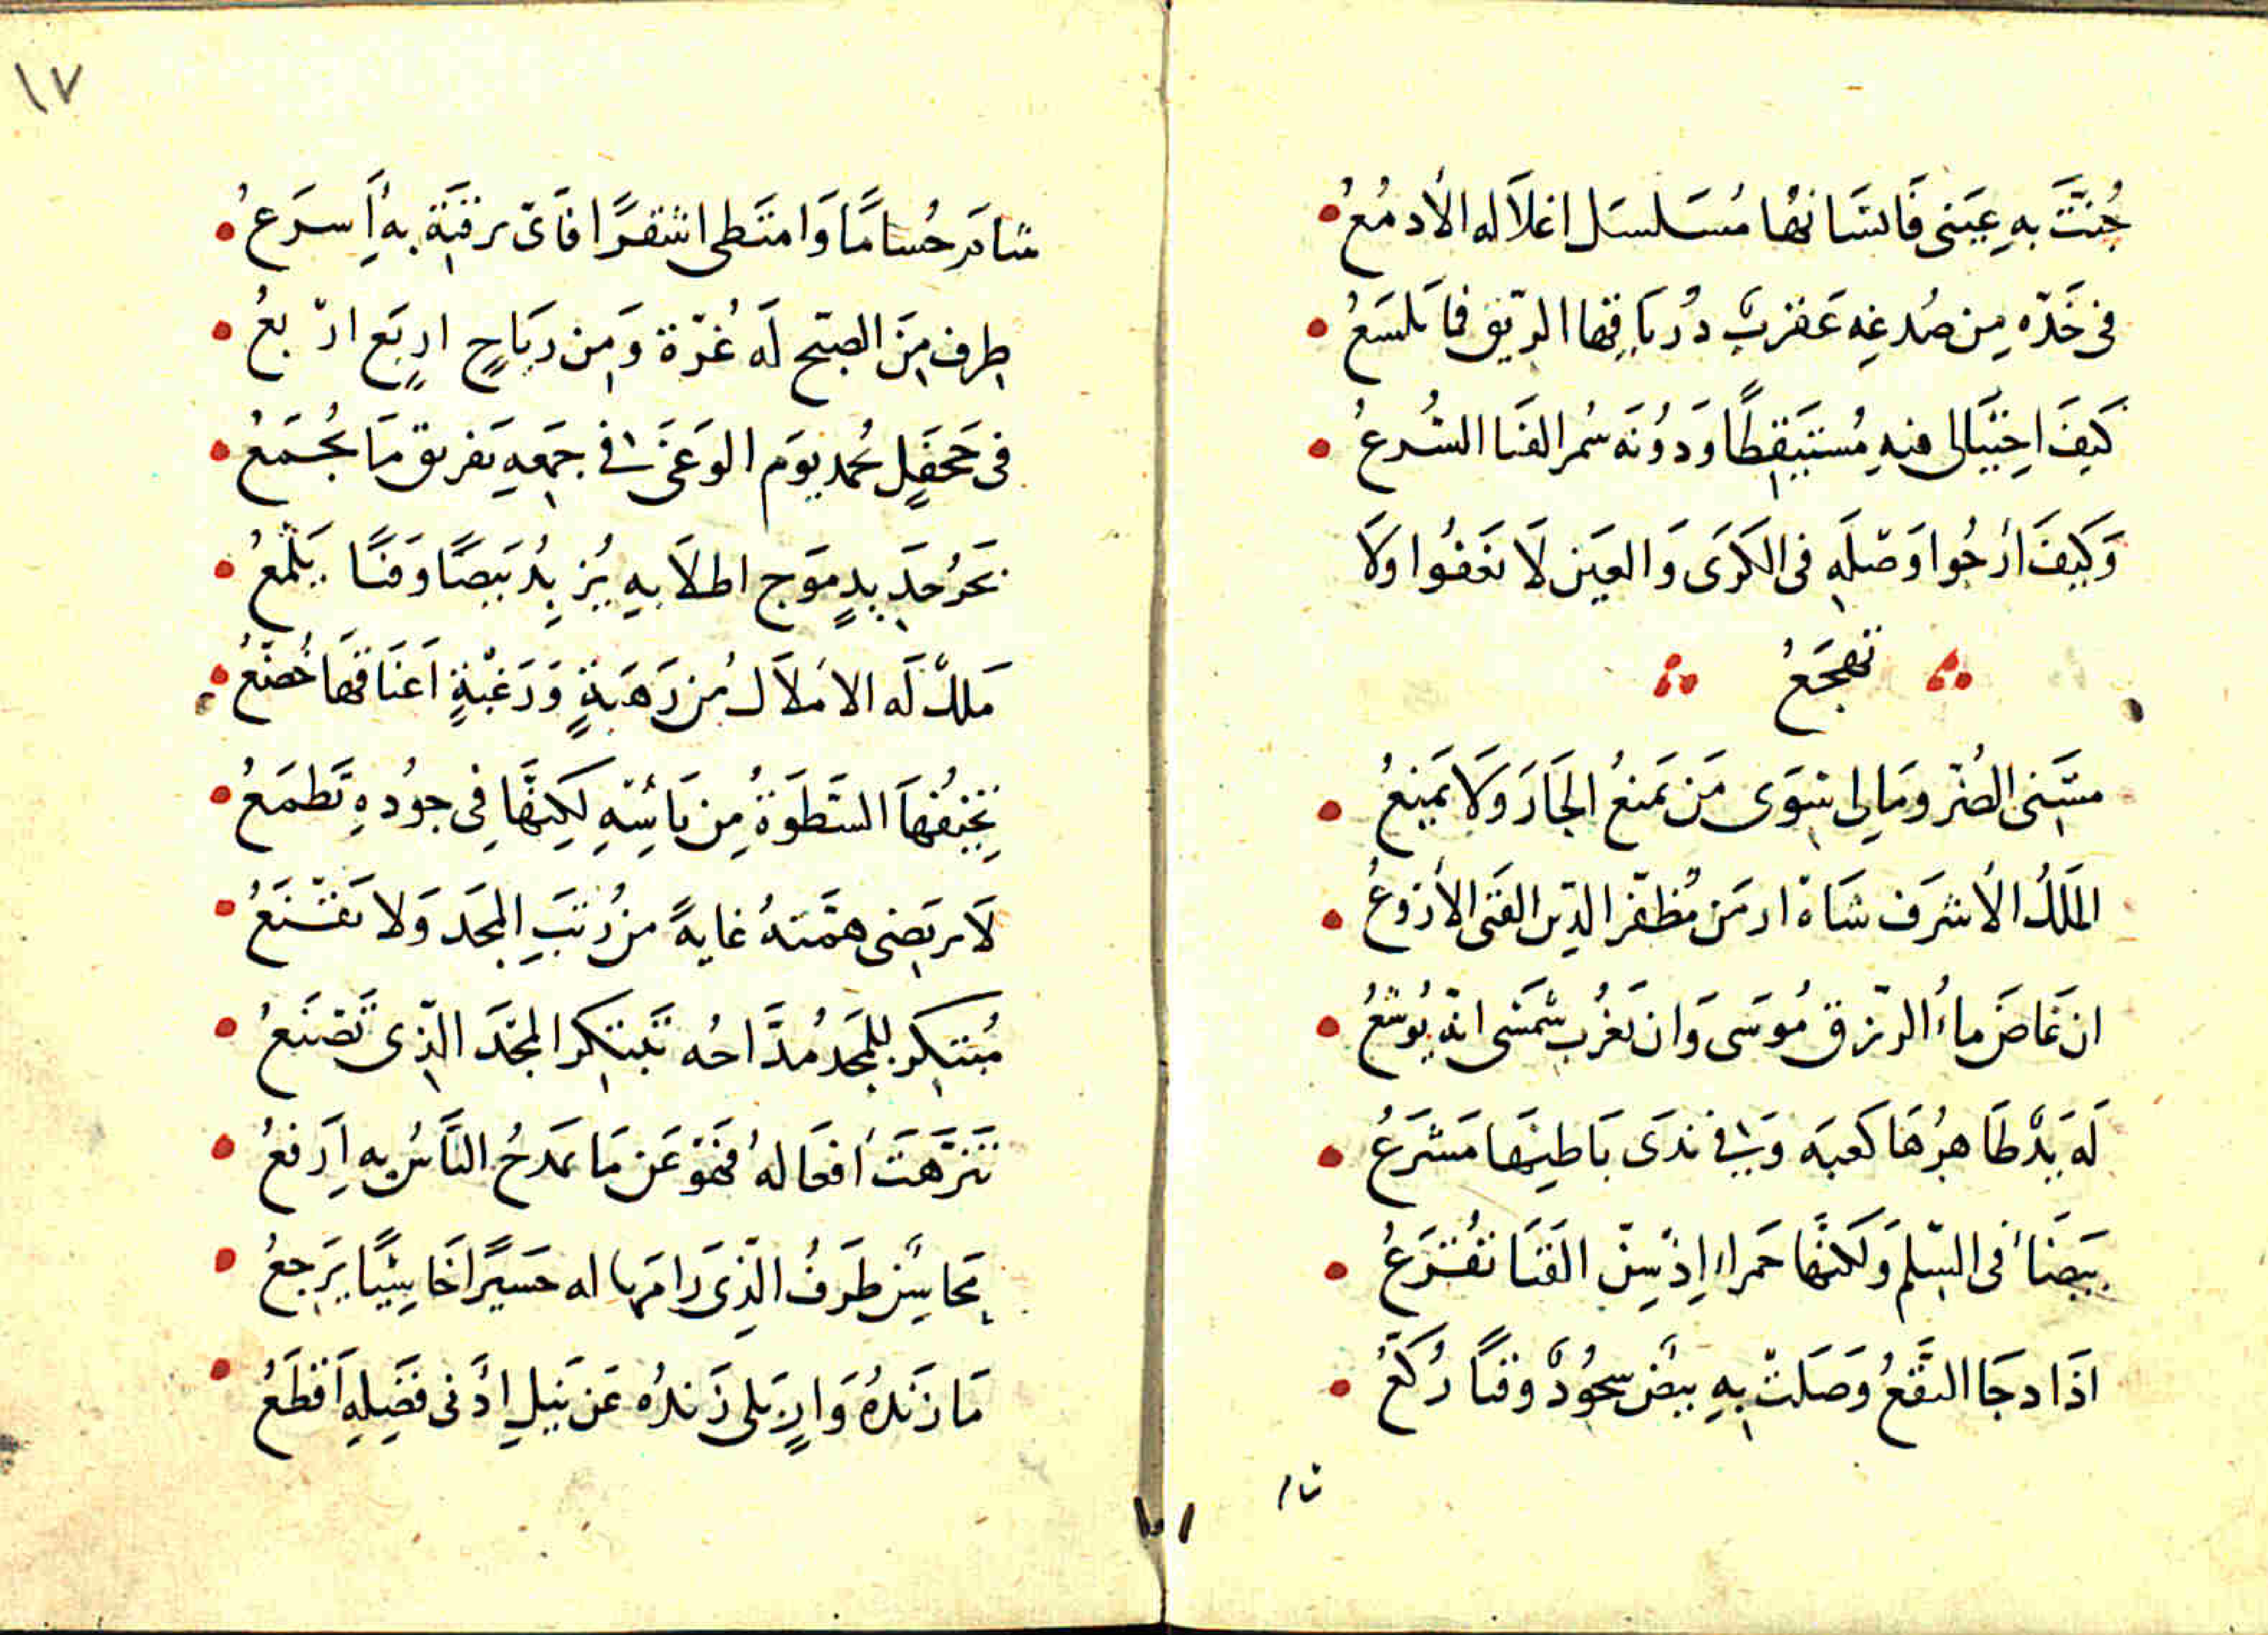 جُنَّتْ بهِ عَينى فَانسَانهُا مُسَلسَل اغلاَله الأدمُعُ
فى خَدّه مِن صُدغِه عَقربٌ دُريَاقِها الرّيق فما تلسَعُ
كَيفَ احِتيَالى فيهِ مُستيَقِظًا وَدوُنَه سُمر القَنا الشُرعُ
وَكَيفَ أرجُوا وَصلَهِ فى الكَرَى وَالعَين لاَ تغَفُوا وَلاَ
تهجَعُ
مسَّنى الضُر ومَا لى سِوَى مَن يَمنعُ الجَارَ وَلاَ يَمنعُ
المَلكُ الأشرَف شَاة ارمَن مُظفّر الدّين الفَتى الأروعُ
ان غَاضَ ماءُ الرّزق مُوسَى وَان تغَرُب شَمسٌ انّه يُوشعُ
لَه يَدٌ ظَاهِرُهَا كَعبَه وَفى ندَى بَاطِنهَا مَشرَعُ
بيَضَاُ فى السِّلم وَلكنهَّا حَمراء إِذ بين القَنَا تُقَرعُ
اذَا دجَا النقَّعُ وَصَلَتْ بِهِ بيضٌ سجُوُدٌ وقناً رُكّعُ
شا
١٧
شاَمَ حُسَامًا وَامتَطى اشقرًا فَاىّ برقيَه به أَسرَعُ
طِرف مِنَ الصبّح لَه غُرّة وَمِن ريَاحٍ اربَعٍ اربعُ
فى جَحفَلٍ يُحمد يوَم الوَغَى فى جَمعِهِ تَفريق مَا يُجمَعُ
بَحرُ حَدِيدٍ موَج ابطالَه بهِ يُزبِدُ بَيضًا وَقَنًا يَلمَعُ
مَلكٌ لَه الامَلاَكُ مِن رَهبَةٍ وَرَغبَةٍ اَعنَاقهَا خُضّعُ
تخِيفُهَا السَطَوةُ مِن بَأسِهِ لكِنهَّا فِى جوُدهِ تَطمَعُ
لاَ ترتَضِى همَّتهُ غايةً من رُتبَِ المجَد وَلا تقَنَعُ
مُبتكِر للِمَجد مُدَّاحُه تَبتكِر المجَدَ الّذِى تَصنَعُ
تنَزَّهَت أفعَالهُ فَهوَ عَن مَا يمَدحُ النَّاسُ بِه اَرفعُ
محَاسِنٌ طَرفُ الّذِى رَامَهِا له حَسيرًا خَاسِئًا يَرجعُ
مَا زَندهُ وَارٍ بَلى زَندُه عَن نَيلِ ادنَى فَضِيلهِ اَقطَعُ